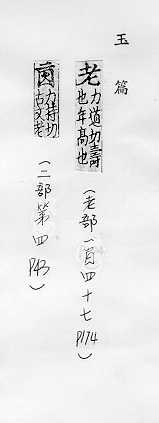 玉篇
老力道切壽也年高也（老部一百四十七P174）
力持切古文老（二部第四P43）